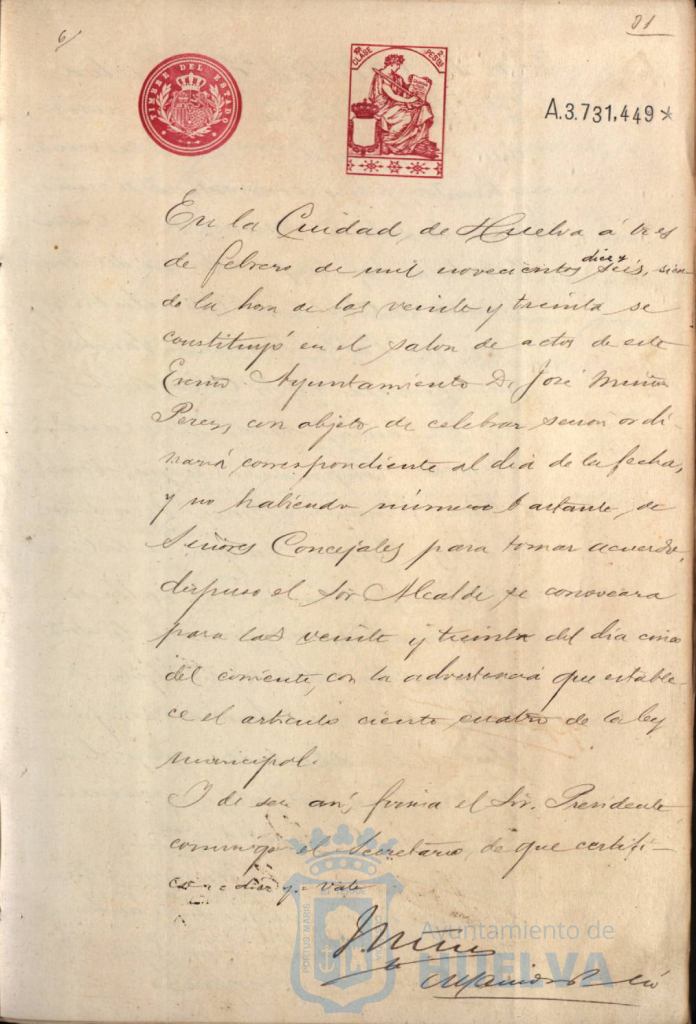 6/
81
TIMBRE DEL ESTADO
CLASE
PESETAS
A.3.731,449*
En la Ciudad de Huelva á tres
de febrero de mil novecientos diez y seis, sien-
do la hora de las veinte y treinta se
constituyó en el salon de actos de este
Excmo Ayuntamiento D. José Muñoz
Perez, con objeto de celebrar sesion ordi-
naria correspondiente al dia de la fecha,
y no habiendo número bastante de
Señores Concejales para tomar acuerdo,
dispuso el Sor Alcalde se convocara
para las veinte y treinta del dia cinco
del corriente, con la advertencia que estable-
ce el articulo ciento cuatro de la ley
municipal.
Y de ser asi, firma el Sor. Presidente
conmigo el Secretario, de que certifi-
co = diez y = vale
PORTUS MARIS
Ayuntamiento de
HUELVA